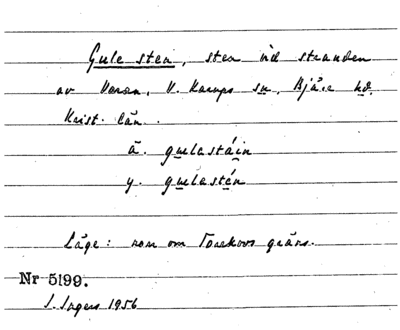 Gule sten, sten vid stranden
av Varan, V. Karups sn, Bjäre hd,
Krist. län.
ä. gulastáin
y. gulastén
Läge: rom om Torekovs gräns.
Nr 5199.
I. Ingers 1956